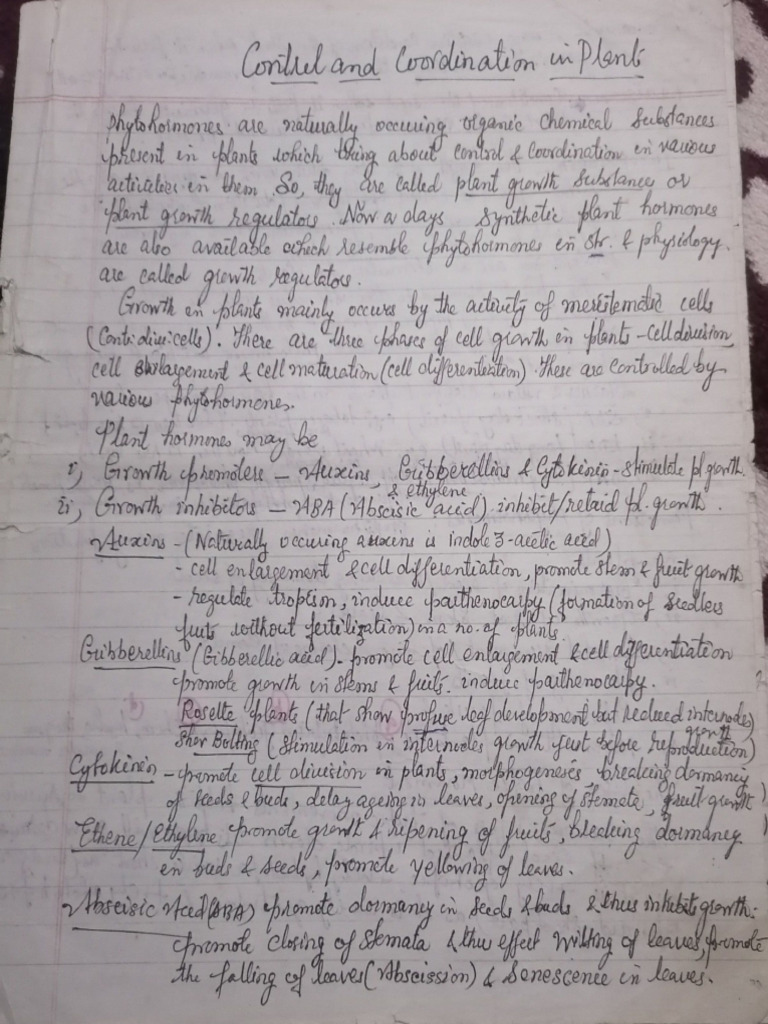 Control and Coordination in Plants
Phytohormones are naturally occuring organic chemical substances
present in plants which bring about control & coordination in various
activities in them. So, they are called plant growth substance or
plant growth regulators. Now a days synthetic plant hormones
are also available which resemble phytohormones in str. & physiology.
are called growth regulators.
Growth in plants mainly occurs by the activity of meristematic cells
There are three phases of cell growth in plants - Cell division,
cell enlargement & cell maturation (cell differentiation). These are controlled by
various phytohormones.
Plant hormones may be
i, Growth promoters - Auxins, Gibberellins & Cytokinin - stimulate pl growth.
& ethylene
ii, Growth inhibitors - ABA (Abscisic acid) inhibit/retard pl. growth.
Auxins - (Naturally occuring auxins is indole 3-acetic acid)
- cell enlargement & cell differentiation, promote stem & fruit growth
- regulate tropism, induce parthenocarpy (formation of seedless
fruits without fertilization) in a no. of plants.
Gibberellins (Gibberellic acid) - promote cell enlargement & cell differentiation
promote growth in stems & fruits. induce parthenocarpy.
Rosette plants (that show profuse leaf development but reduced internodes)
growth
Bolting (stimulation in internodes growth just before reproduction)
Cytokinin - promote cell division in plants, morphogenesis breaking dormancy
of seeds & buds, delay ageing in leaves, opening of stomata, fruit growth)
Ethene/Ethylene promote growth & ripening of fruits, breaking dormancy
in buds & seeds, promote yellowing of leaves.
Abscisic Acid (ABA) promote dormancy in seeds & buds & thus inhibits growth.
promote closing of stomata & thus effect wilting of leaves, promote
the falling of leaves (Abscission) & senescence in leaves.